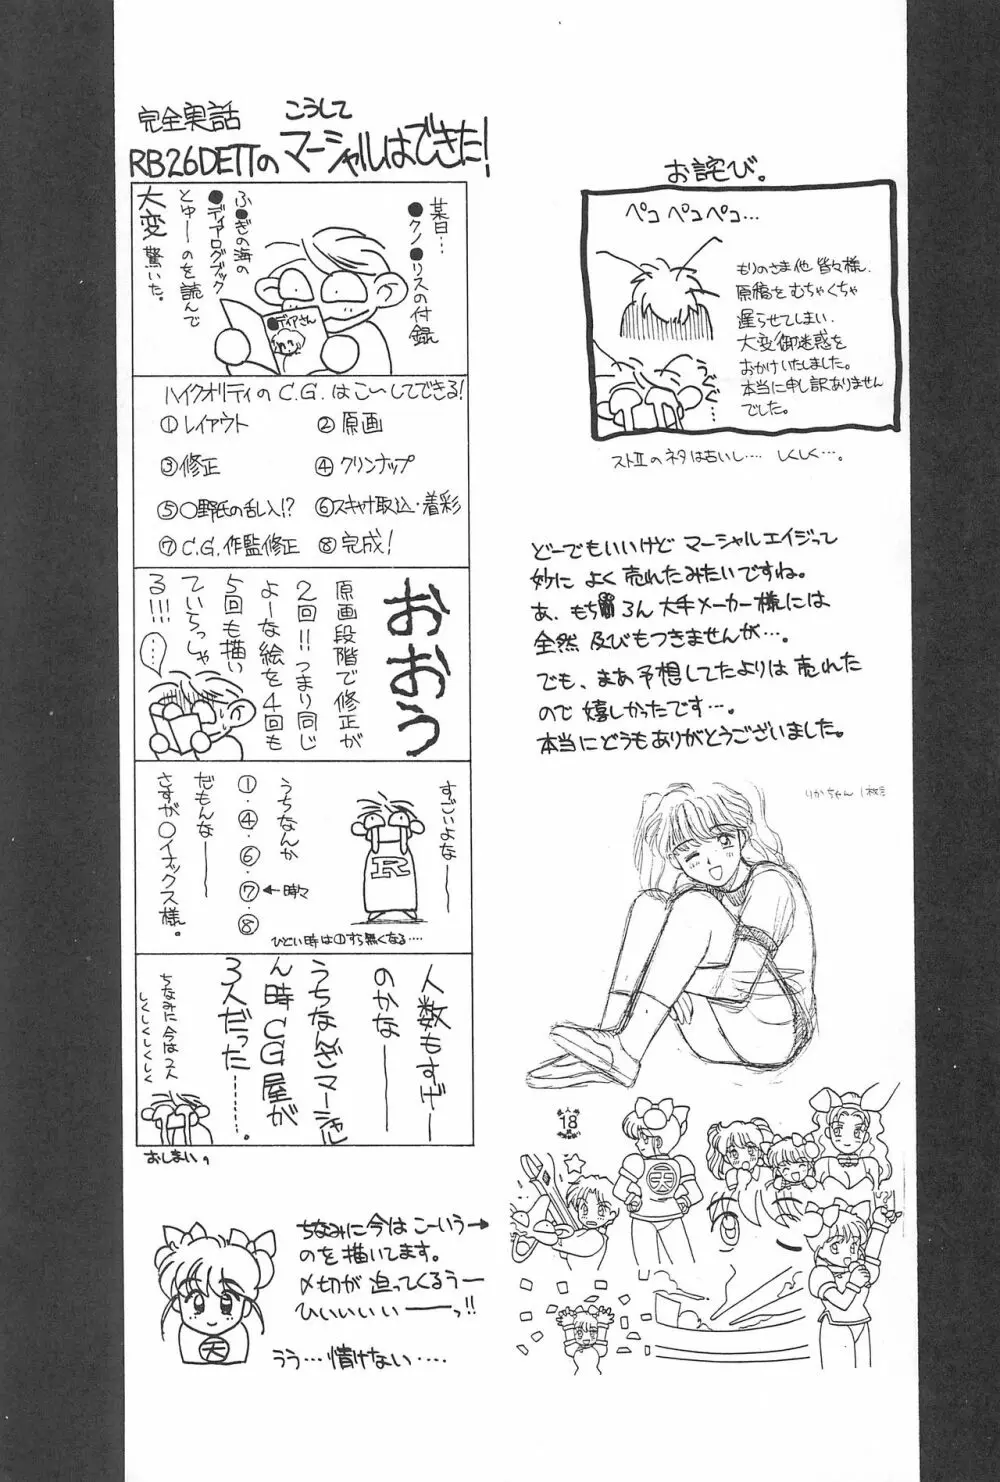 完全実話
こうして
RB26DETTのマーシャルはできた!
某日…
●クノ●リスの付録
ふ●ぎの海の
●ディアログブック
とゅーのを読んで
大変驚いた。
●ディアさん
ハイクオリティのC.G.はこ〜してできる!
①レイアウト
②原画
③修正
④クリンナップ
⑤〇野氏の乱入!?
⑥スキャナ取込・着彩
⑦C.G.作監修正
⑧完成!
おおう
原画段階で修正が
2回!!つまり同じ
よーな絵を4回も
5回も描い
ていらっしゃ
る!!!
(……)
すごいよなー
うちなんか
①・④・⑥・⑦・⑧
←時々
だもんなー
さすが〇イナックス様。
R
ひどい時は①すら無くなる….
人数もすげー
のかなー
うちなんざマーシャル
ん時CG屋が
3人だった………。
ちなみに今は2人
しくしくしくしく
おしまい。
ちなみに今はこーいう→
のを描いてます。
〆切が迫ってくるうー
ひいいいいーっ!!
うう…情けない….
天
お詫び。
ペコ ペコペコ…
もりのさま他 皆々様、
原稿をむちゃくちゃ
遅らせてしまい、
大変御迷惑を
おかけいたしました。
本当に申し訳ありません
でした。
ストⅡのネタは古いし…. しくしく…。
どーでもいいけど マーシャルエイジって
妙に よく 売れたみたいですね。
あ、もちろん 大手メーカー様には
全然 及びもつきませんが…。
でも、まあ予想してたよりは 売れた
ので 嬉しかったです…。
本当にどうもありがとうございました。
りかちゃん
18
天